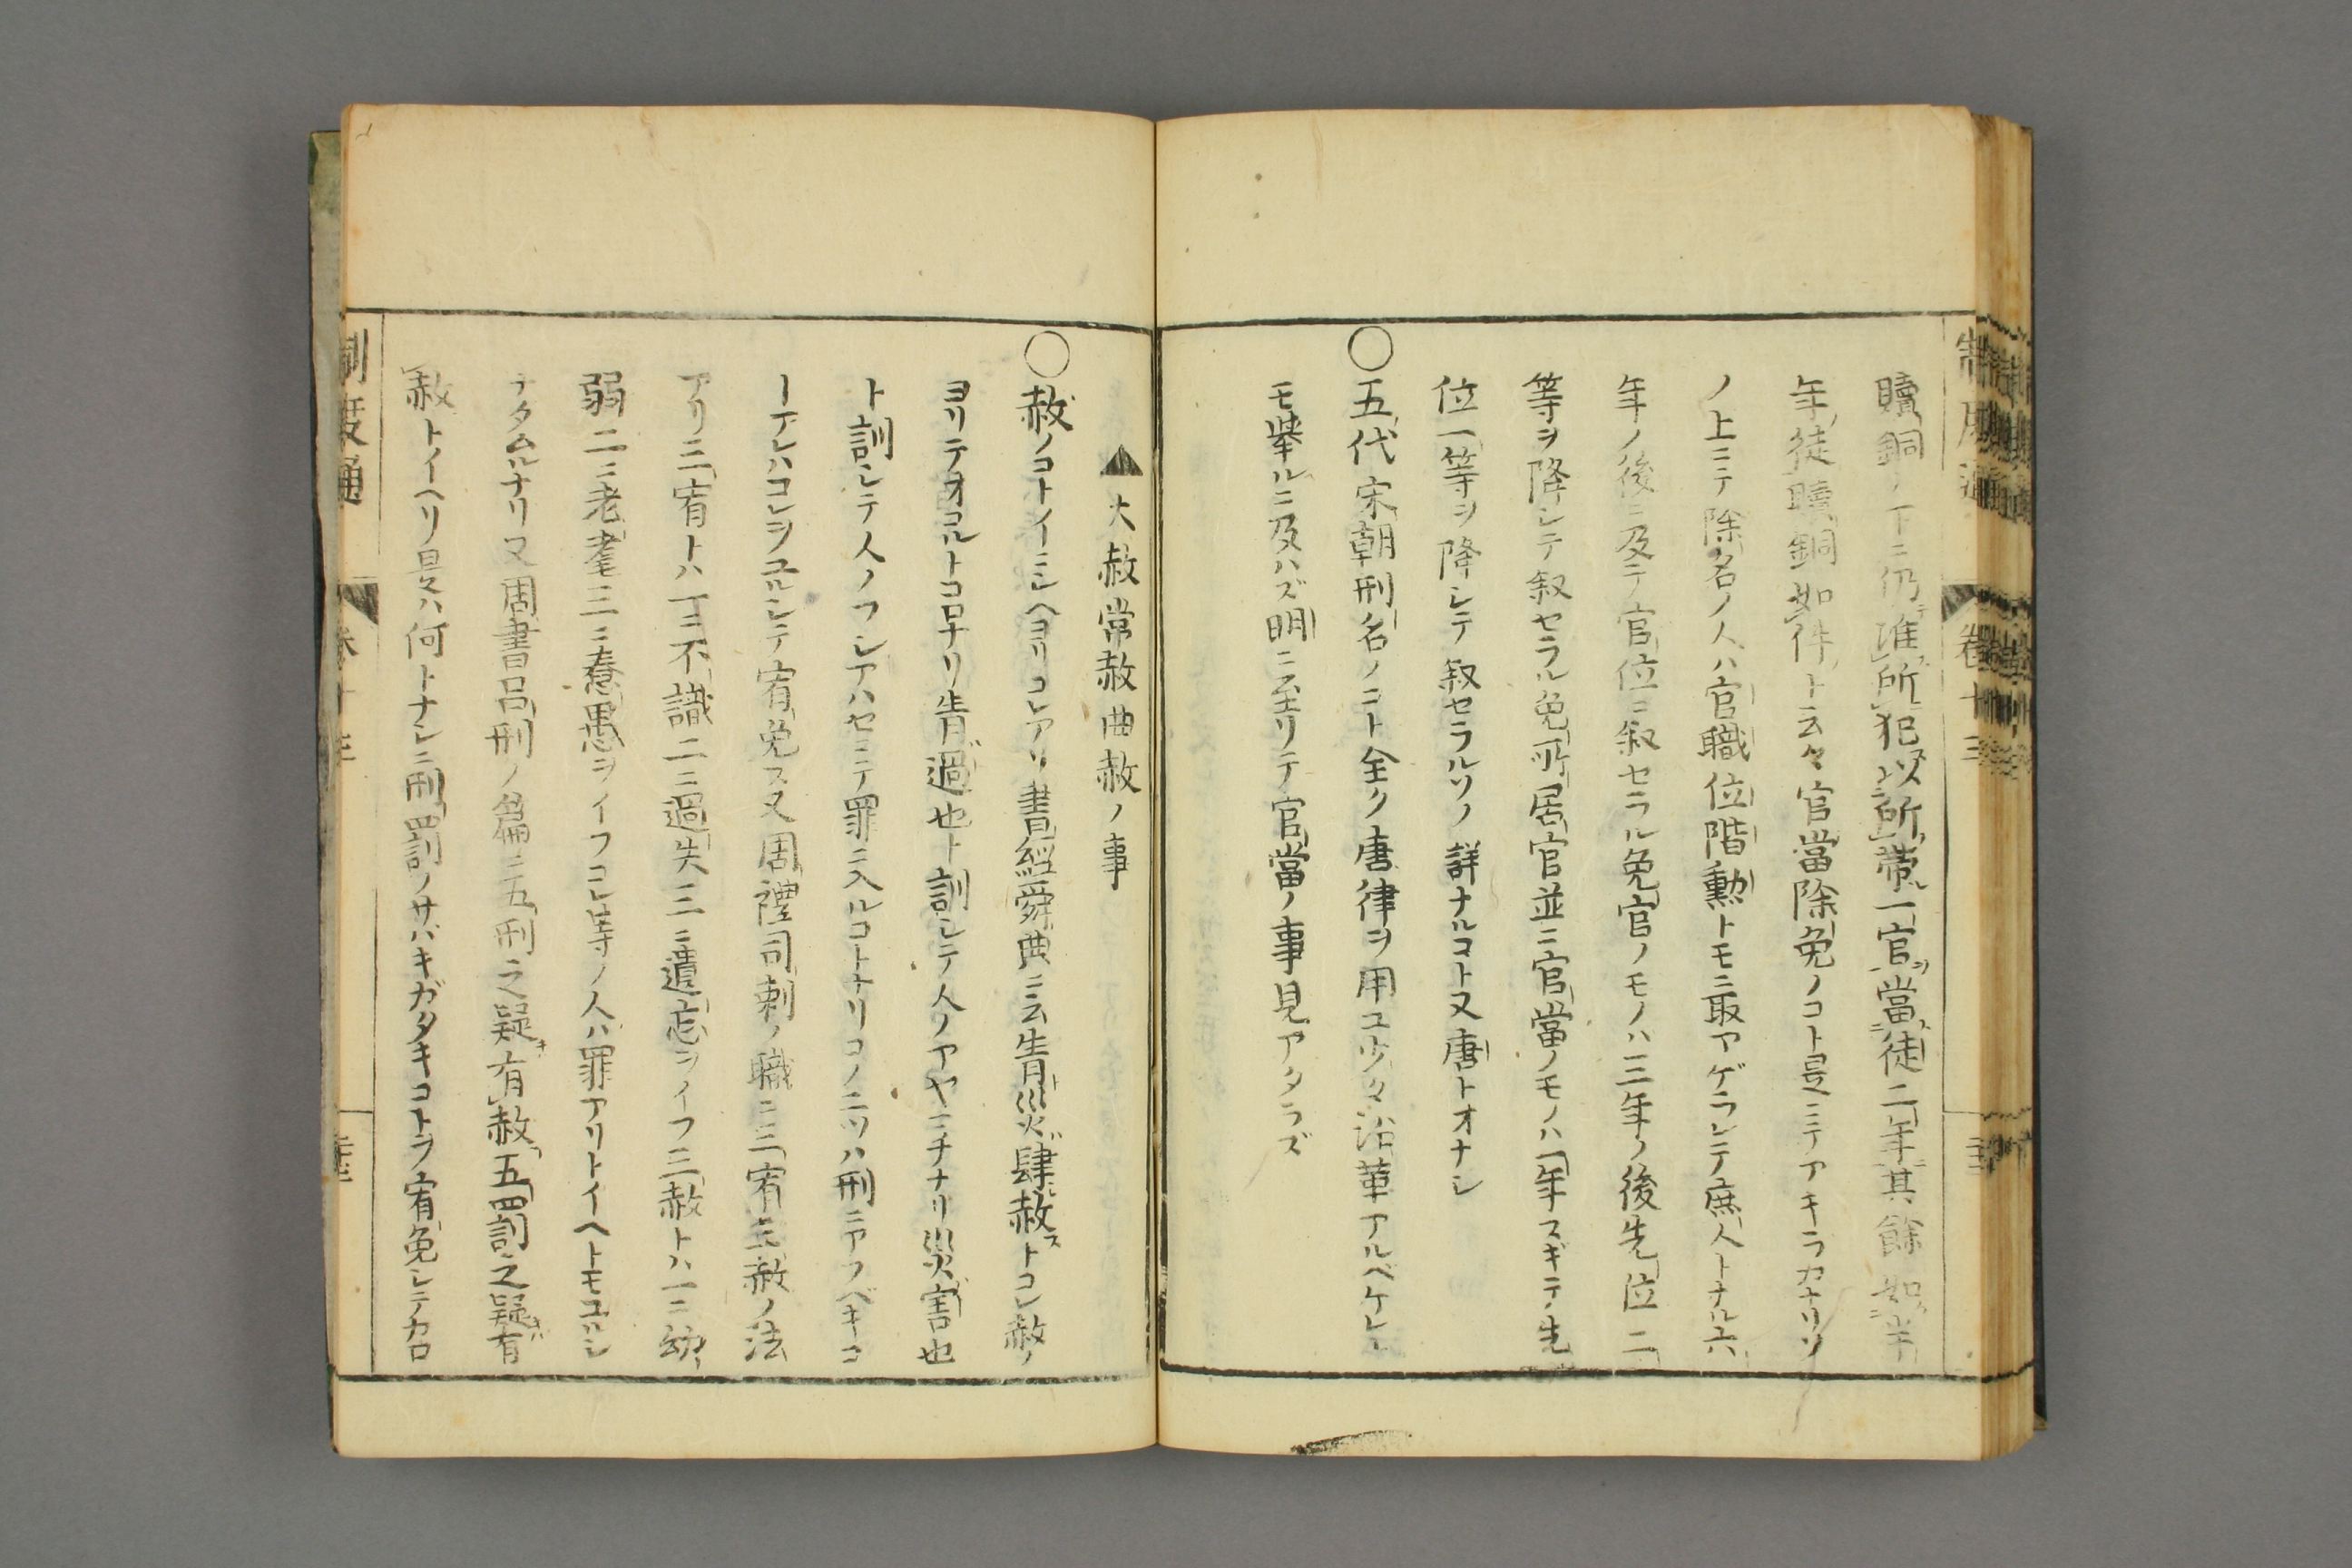 贖銅ノ下ニ仍准所犯以所帶一官當徒二年其餘如半
年徒贖銅如件ト云々官當除免ノコト是ニテアキラカナリソ
ノ上ニテ除名ノ人ハ官職位階勳トモニ取アゲラレテ庶人トナル六
年ノ後ニ及テ官位ニ叙セラル免官ノモノハ三年ノ後先位二
等ヲ降シテ叙セラル免所居官並ニ官當ノモノハ一年スギテ先
位一等ヲ降シテ叙セラルソノ詳ナルコト又唐トオナシ
○五代宋朝刑名ノコト全ク唐律ヲ用ユ少々沿革アルベケレ𪜈
モ舉ルニ及ハズ明ニ至リテ官當ノ事見アタラズ
▲大赦常赦曲赦ノ事
○赦ノコトイニシヘヨリコレアリ書經舜典ニ云眚災肆赦ストコレ赦ノ
ヨリテオコルトコロナリ眚ハ過也ト訓シテ人ノアヤマチナリ災ハ害也
ト訓シテ人ノフシアハセニテ罪ニ入ルコトナリコノ二ツハ刑ニアフベキコ
トナレハコレヲユルシテ宥免ス又周禮司刺ノ職ニ三宥三赦ノ法
アリ三宥トハ一ニ不識二ニ過失三ニ遺忘ヲイフ三赦トハ一ニ幼
弱二ニ老耄三ニ惷愚ヲイフコレ等ノ人ハ罪アリトイヘトモユルシ
ナタムルナリ又周書呂刑ノ篇ニ五刑之疑有赦五罰之疑有
赦トイヘリ是ハ何トナレニ刑罰ノサバキガタキコトヲ宥免シテカロ
制度通 卷十三